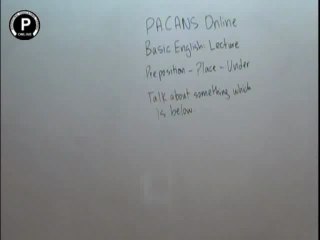 P
PACANS Online
Basic English: Lecture
Preposition - Place - Under
Talk about something, which
is below